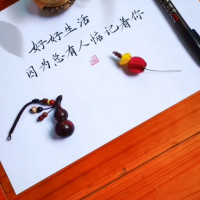 好好生活
因为总有人惦记着你